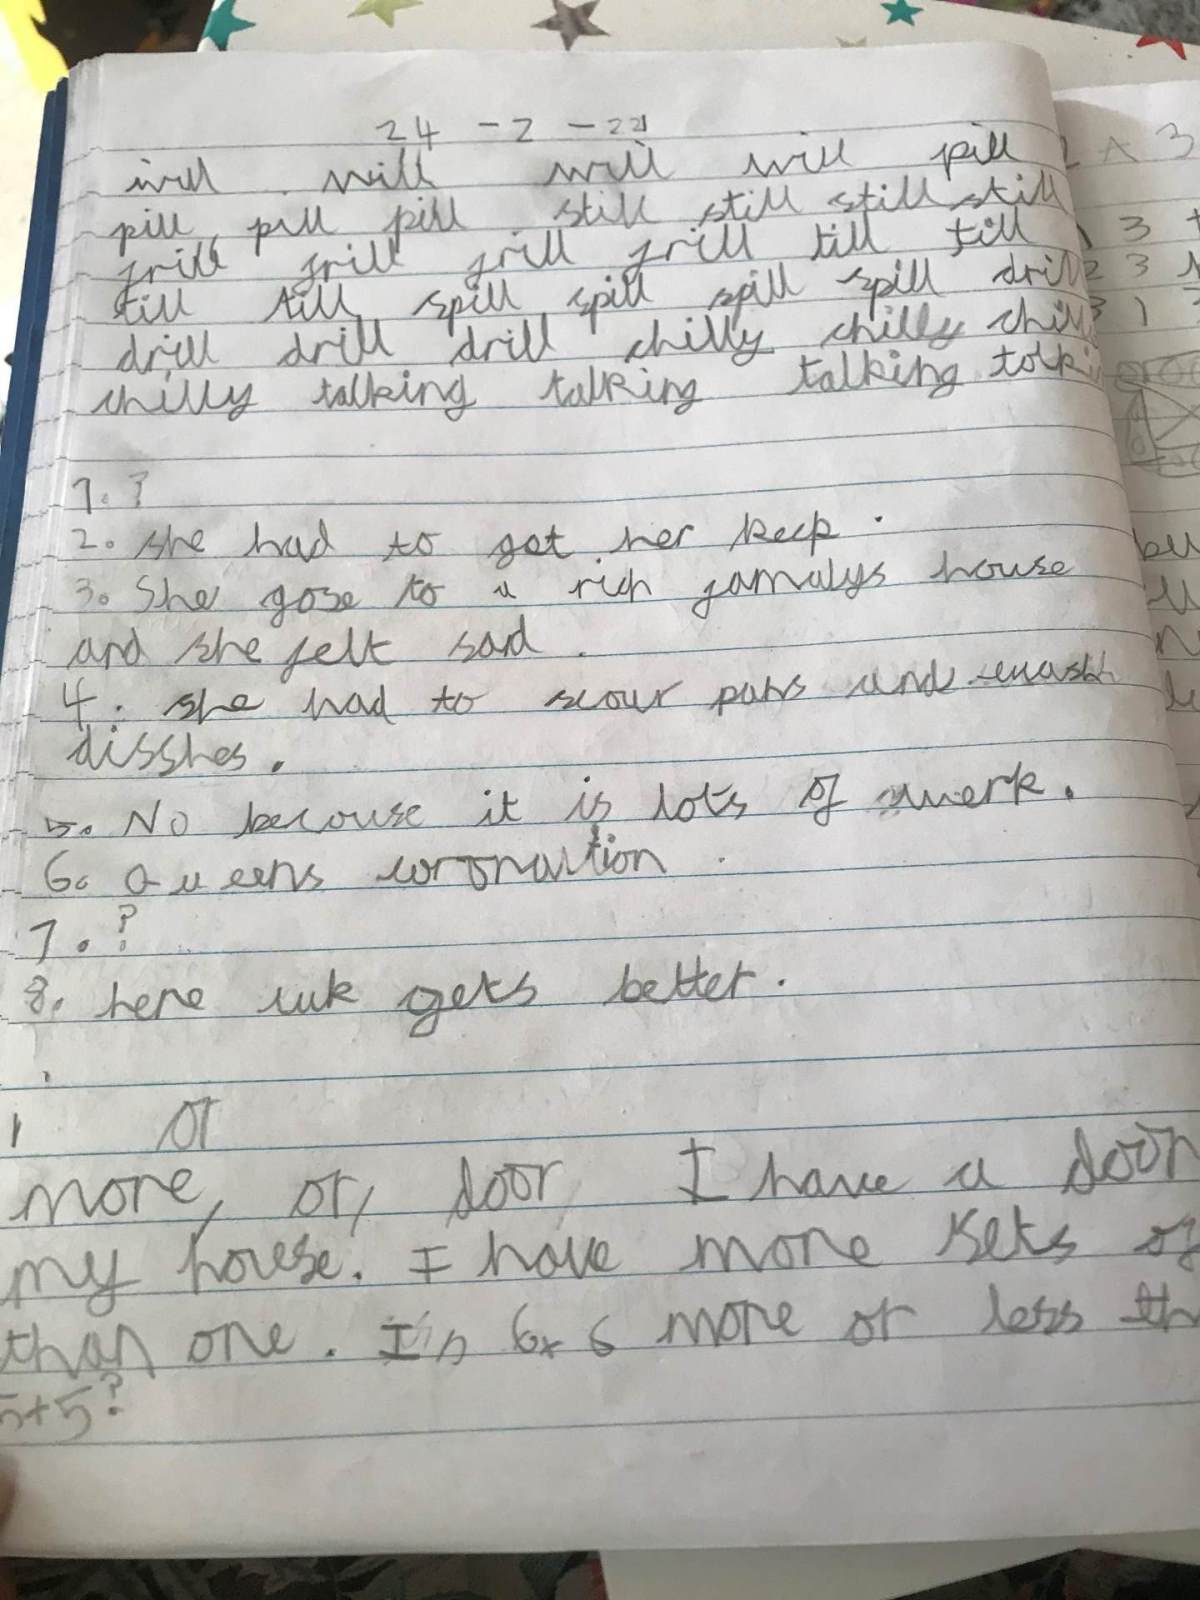 24 - 2 - 22
will will will will pill
pill pill pill still still still still
grill grill grill grill till till
till till spill spill spill spill drill
drill drill drill chilly chilly chill
chilly talking talking talking talkin
1. ?
2. she had to get her keep.
3. She gose to a rich famalys house
and she felt sad.
4. she had to scour pans and wash
disshes.
5. No because it is lots of werk.
6. Queens coronation.
7. ?
8. here luk gets better.
1 or
more, or, door I have a door
my house. I have more sets of
than one. Is 6x6 more or less th
5+5?